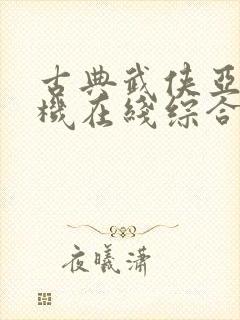 古典武侠亚
機在綫綜合
夜曦潇